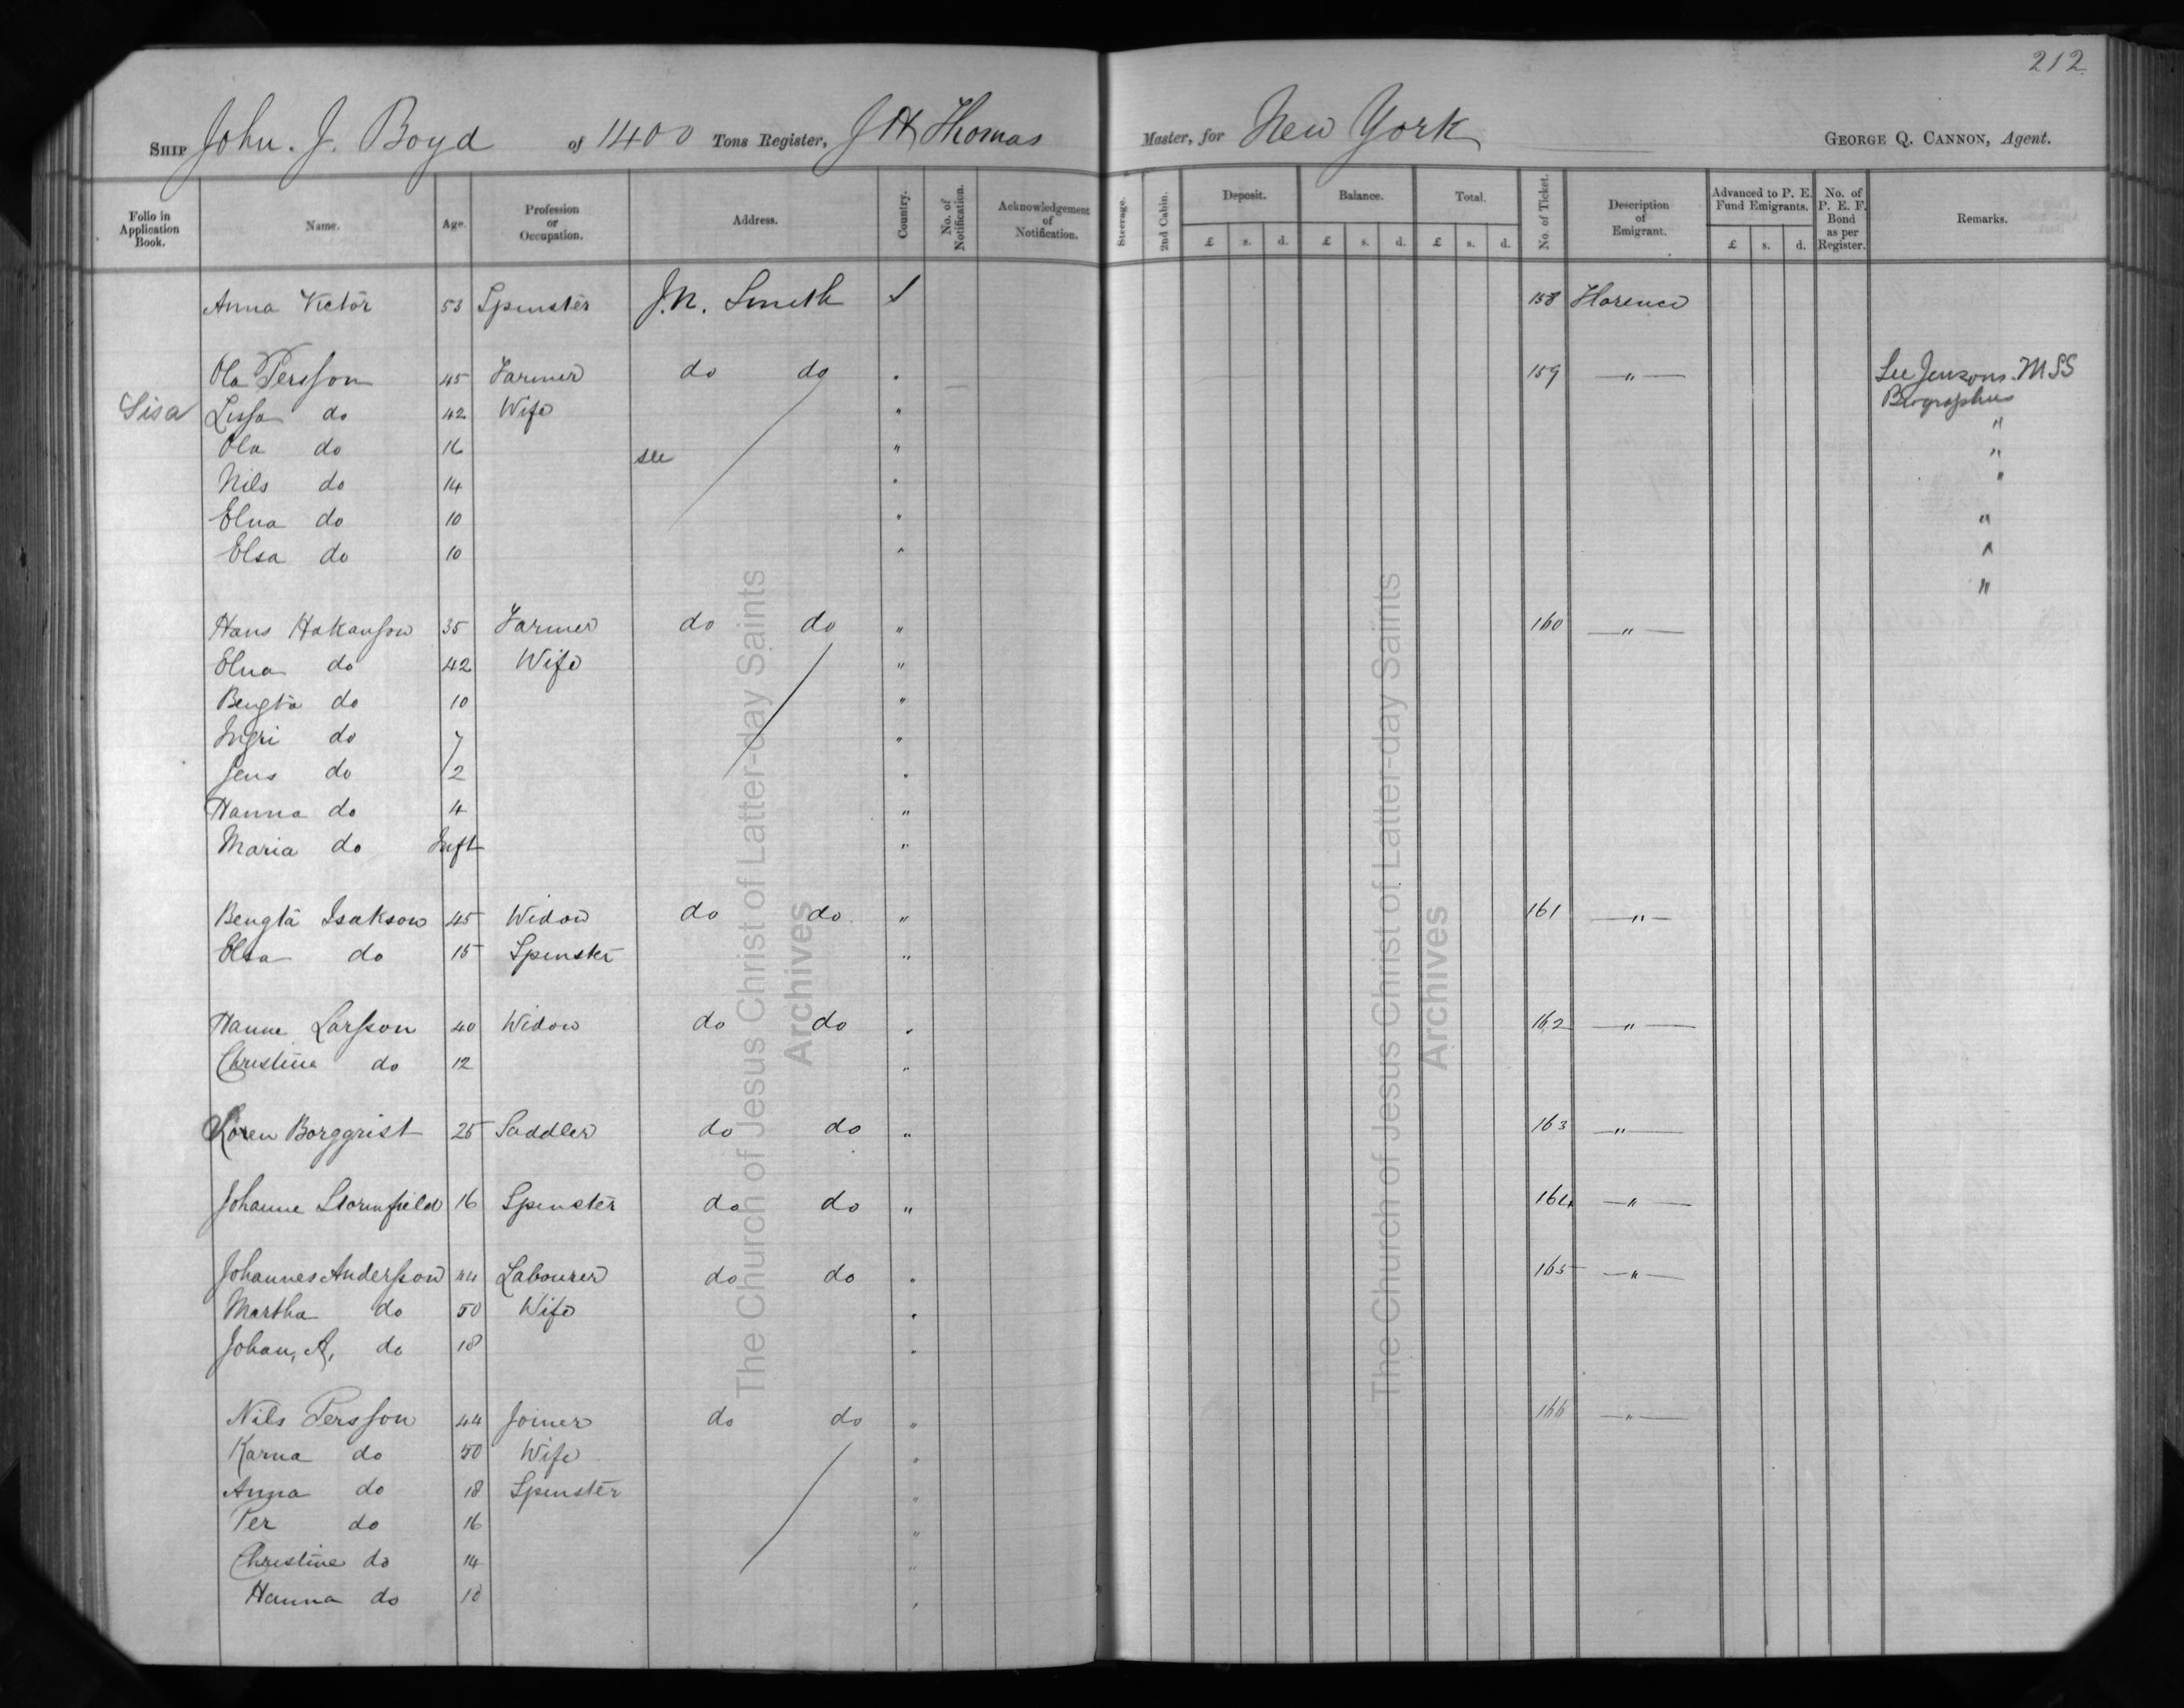 212
SHIP John. J. Boyd of 1400 Tons Register, J H Thomas Master, for New York GEORGE Q. CANNON, Agent.
Folio in Application Book. Name. Age. Profession or Occupation. Address. Country. No. of Notification. Acknowledgement of Notification. Steerage. 2nd Cabin. Deposit. Balance. Total. No. of Ticket. Description of Emigrant. Advanced to P. E. Fund Emigrants. No. of P. E. F. Bond as per Register. Remarks.
£ s. d. £ s. d. £ s. d. £ s. d.
Anna Victor 53 Spinster J. N. Smith S 158 Florence
Ola Persson 45 Farmer do do " 159 " See Jensons MSS
Lisa Lissa do 42 Wife " Biographies
Ola do 16 see " "
Nils do 14 " "
Elna do 10 " "
Elsa do 10 " "
Hans Hakanson 35 Farmer do do " 160 "
Elna do 42 Wife "
Bengta do 10 "
Ingri do 7 "
Jens do 2 "
Hanna do 4 "
Maria do Inft "
Bengta Isakson 45 Widow do do " 161 "
Elsa do 15 Spinster "
Hanne Larsson 40 Widow do do " 162 "
Christine do 12 "
Soren Borgqrist 25 Saddler do do " 163 "
Johanne Stormfield 16 Spinster do do " 164 "
Johannes Andersson 44 Labourer do do " 165 "
Martha do 50 Wife "
Johan, A, do 18 "
Nils Persson 44 Joiner do do " 166 "
Karna do 50 Wife "
Anna do 18 Spinster "
Per do 16 "
Christine do 14 "
Hanna do 10 "
The Church of Jesus Christ of Latter-day Saints
Archives
The Church of Jesus Christ of Latter-day Saints
Archives